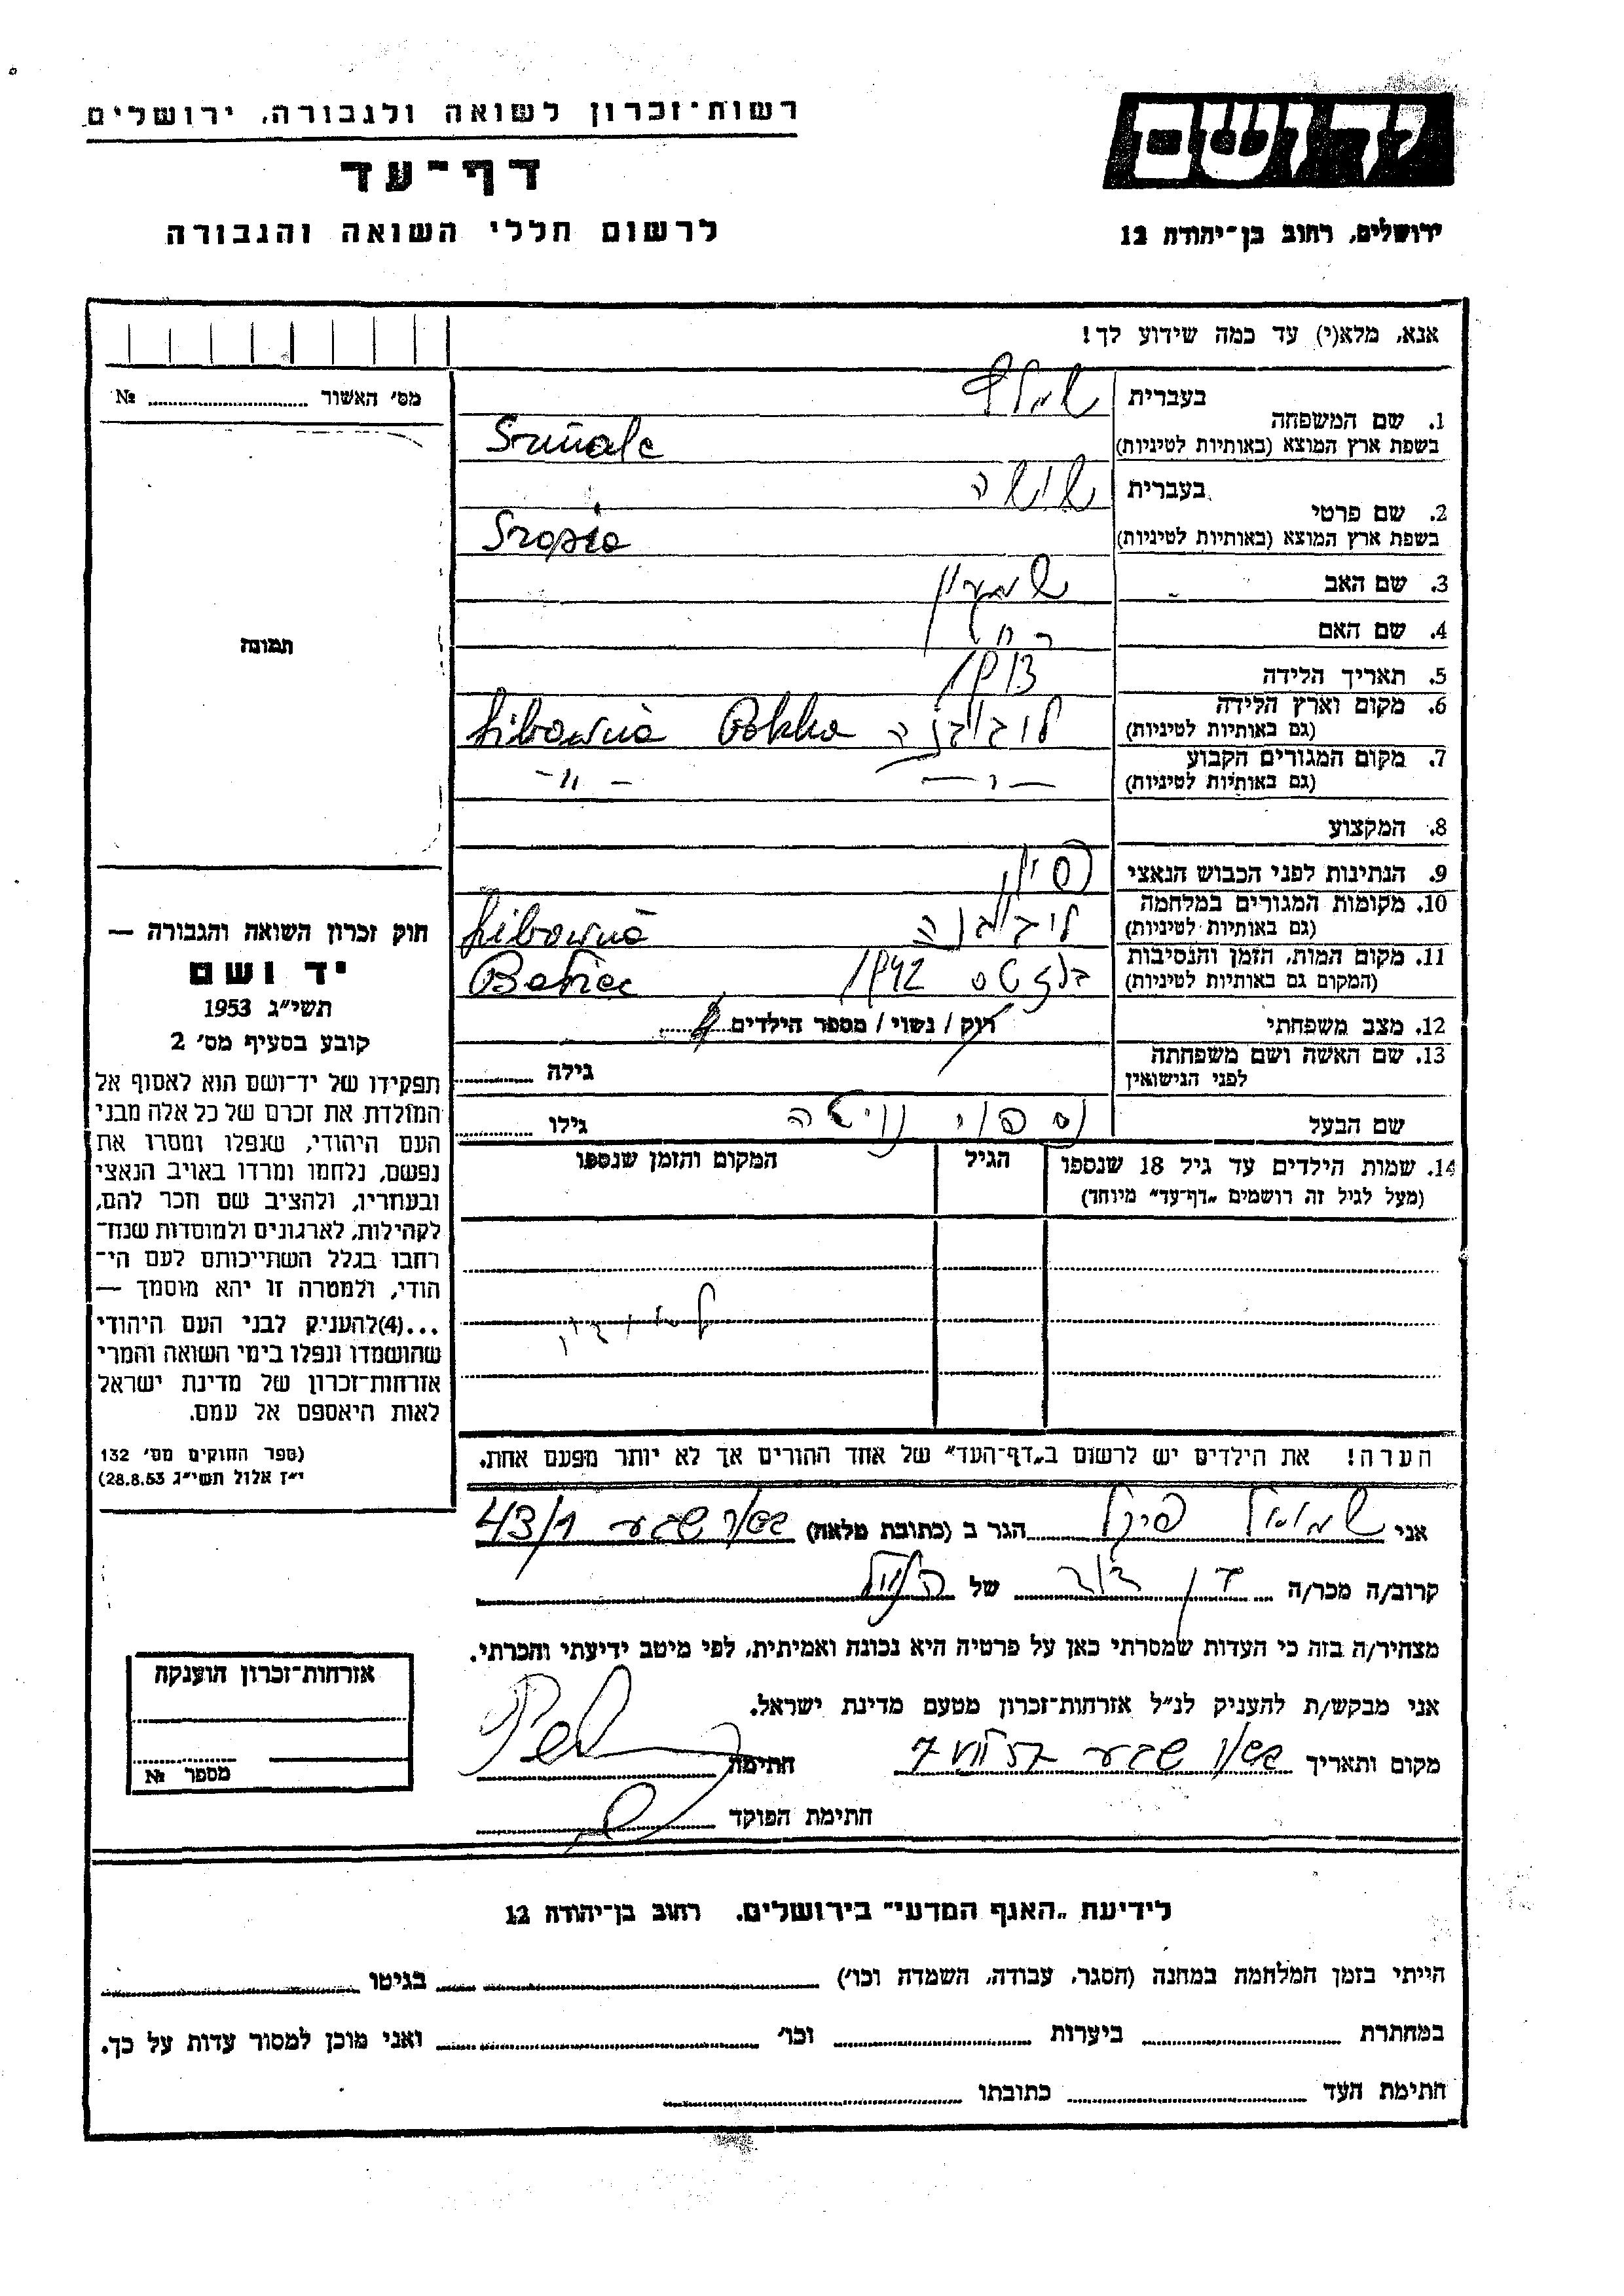 רשות־זכרון לשואה ולגבורה, ירושלים
דף־עד
לרשום חללי השואה והגבורה
ירושלים, רחוב בן־יהודה 12
אנא, מלא(י) עד כמה שידוע לך!
מס׳ האשור № 
תמונה
חוק זכרון השואה והגבורה —
יד ושם
תשי״ג 1953
קובע בסעיף מס׳ 2
תפקידו של יד־ושם הוא לאסוף אל
המולדת את זכרם של כל אלה מבני
העם היהודי, שנפלו ומסרו את
נפשם, נלחמו ומרדו באויב הנאצי
ובעוזריו, ולהציב שם וזכר להם,
לקהילות, לארגונים ולמוסדות שנח־
רבו בגלל השתייכותם לעם הי־
הודי, ולמטרה זו יהא מוסמך —
...(4)להעניק לבני העם היהודי
שהושמדו ונפלו בימי השואה והמרי
אזרחות־זכרון של מדינת ישראל
לאות היאספם אל עמם.
(ספר החוקים מס׳ 132
י״ז אלול תשי״ג 28.8.53)
בעברית
1. שם המשפחה
בשפת ארץ המוצא (באותיות לטיניות)
בעברית
2. שם פרטי
בשפת ארץ המוצא (באותיות לטיניות)
3. שם האב שמעון
4. שם האם רחל
5. תאריך הלידה 1913
6. מקום וארץ הלידה
(גם באותיות לטיניות)
7. מקום המגורים הקבוע
(גם באותיות לטיניות)
8. המקצוע
9. הנתינות לפני הכבוש הנאצי
10. מקומות המגורים במלחמה
(גם באותיות לטיניות)
11. מקום המות, הזמן והנסיבות 1942
(המקום גם באותיות לטיניות) Belzec
12. מצב משפחתי רוק / נשוי / מספר הילדים
13. שם האשה ושם משפחתה גילה
לפני הנישואין
שם הבעל גילו
14. שמות הילדים עד גיל 18 שנספו הגיל המקום והזמן שנספו
(מעל לגיל זה רושמים „דף־עד״ מיוחד)
הערה! את הילדים יש לרשום ב„דף־העד״ של אחד ההורים אך לא יותר מפעם אחת.
אני שמואל הגר ב (כתובת מלאה) באר שבע 43/1
קרוב/ה מכר/ה בן דוד של הנ״ל
מצהיר/ה בזה כי העדות שמסרתי כאן על פרטיה היא נכונה ואמיתית, לפי מיטב ידיעתי והכרתי.
אני מבקש/ת להעניק לנ״ל אזרחות־זכרון מטעם מדינת ישראל.
מקום ותאריך באר שבע חתימה
חתימת הפוקד
אזרחות־זכרון הוענקה
מספר №
לידיעת „האגף המדעי״ בירושלים. רחוב בן־יהודה 12
הייתי בזמן המלחמה במחנה (הסגר, עבודה, השמדה וכו׳) בגיטו
במחתרת ביערות וכו׳ ואני מוכן למסור עדות על כך.
חתימת העד כתובתו